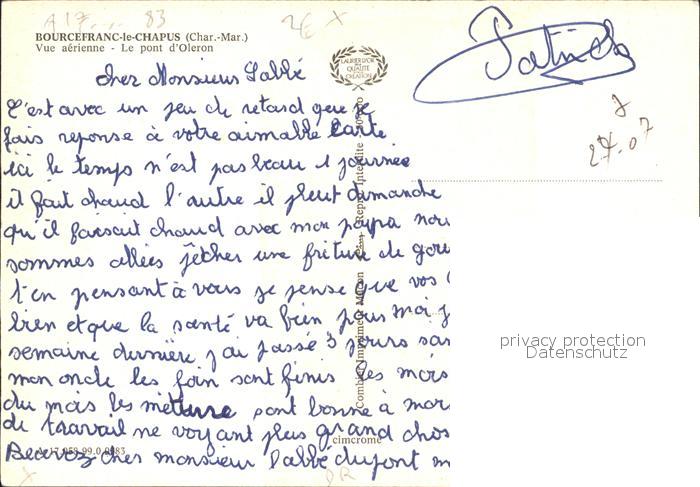 A 17 ... 83
2€ X
BOURCEFRANC-le-CHAPUS (Char.-Mar.)
Vue aérienne - Le pont d'Oleron
LAURIER D'OR DE LA QUALITÉ CRÉATION
Patrick
cher Monsieur l'abbé
C'est avec un peu de retard que je
fais reponse à votre aimable carte
ici le temps n'est pas beau 1 journee
il fait chaud l'autre il pleut dimanche
qu'il faisait chaud avec mon papa nou
sommes allées pêcher une friture de gou
t'en pensant à vous je pense que vos
bien et que la santé va bien pour moi j
semaine dernière j'ai passé 3 jours
mon oncle les foin sont finis les mois
du mois les
sont bonne à
de travail ne voyant plus grand chos
Recevez cher monsieur l'abbé dupont m
27.07
cimcrome
privacy protection
Datenschutz